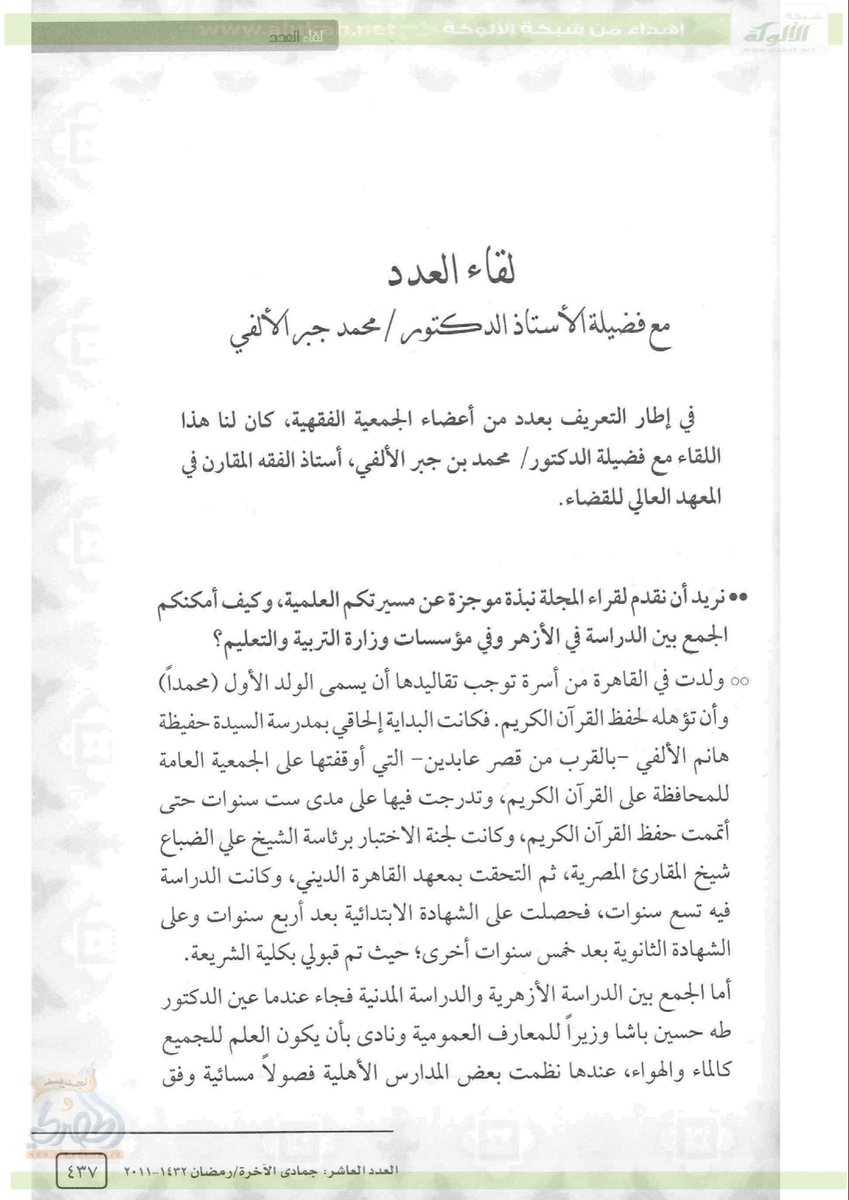 إهداء من شبكة الألوكة www.alukah.net
شبكة
الألوكة
www.alukah.net
لقاء العدد
لقاء العدد
مع فضيلة الأستاذ الدكتور / محمد جبر الألفي
في إطار التعريف بعدد من أعضاء الجمعية الفقهية، كان لنا هذا
اللقاء مع فضيلة الدكتور/ محمد بن جبر الألفي، أستاذ الفقه المقارن في
المعهد العالي للقضاء.
•• نريد أن نقدم لقراء المجلة نبذة موجزة عن مسيرتكم العلمية، وكيف أمكنكم
الجمع بين الدراسة في الأزهر وفي مؤسسات وزارة التربية والتعليم؟
○○ ولدت في القاهرة من أسرة توجب تقاليدها أن يسمى الولد الأول (محمداً)
وأن تؤهله لحفظ القرآن الكريم. فكانت البداية إلحاقي بمدرسة السيدة حفيظة
هانم الألفي -بالقرب من قصر عابدين- التي أوقفتها على الجمعية العامة
للمحافظة على القرآن الكريم، وتدرجت فيها على مدى ست سنوات حتى
أتممت حفظ القرآن الكريم، وكانت لجنة الاختبار برئاسة الشيخ علي الضباع
شيخ المقارئ المصرية، ثم التحقت بمعهد القاهرة الديني، وكانت الدراسة
فيه تسع سنوات، فحصلت على الشهادة الابتدائية بعد أربع سنوات وعلى
الشهادة الثانوية بعد خمس سنوات أخرى؛ حيث تم قبولي بكلية الشريعة.
أما الجمع بين الدراسة الأزهرية والدراسة المدنية فجاء عندما عين الدكتور
طه حسين باشا وزيراً للمعارف العمومية ونادى بأن يكون العلم للجميع
كالماء والهواء، عندها نظمت بعض المدارس الأهلية فصولاً مسائية وفق
العدد العاشر: جمادى الآخرة/رمضان ١٤٣٢-٢٠١١
٤٣٧